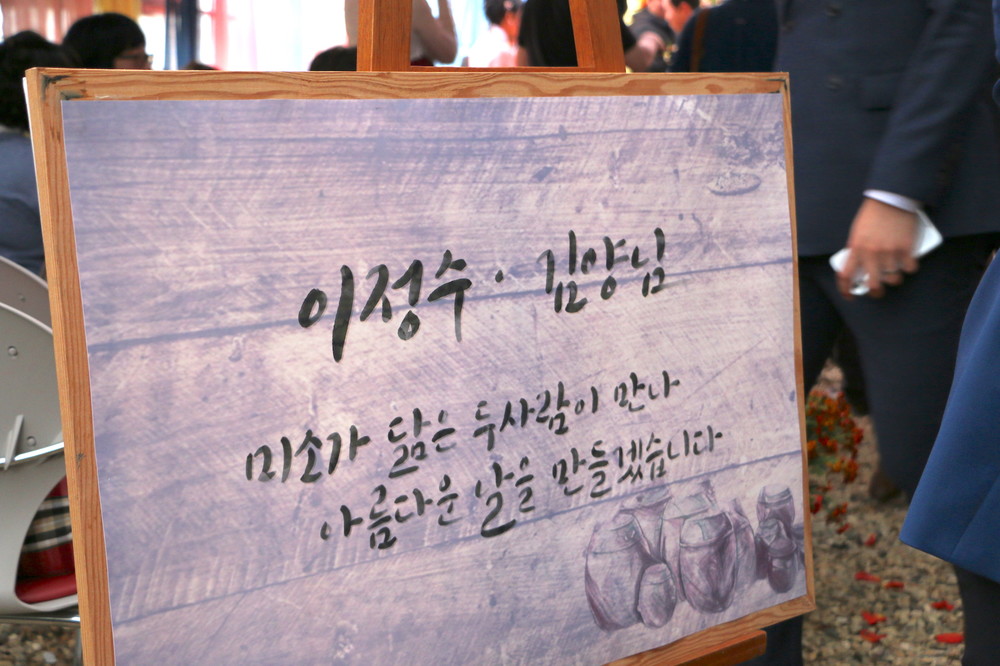 이정수 · 김양님
미소가 닮은 두사람이 만나
아름다운 날을 만들겠습니다